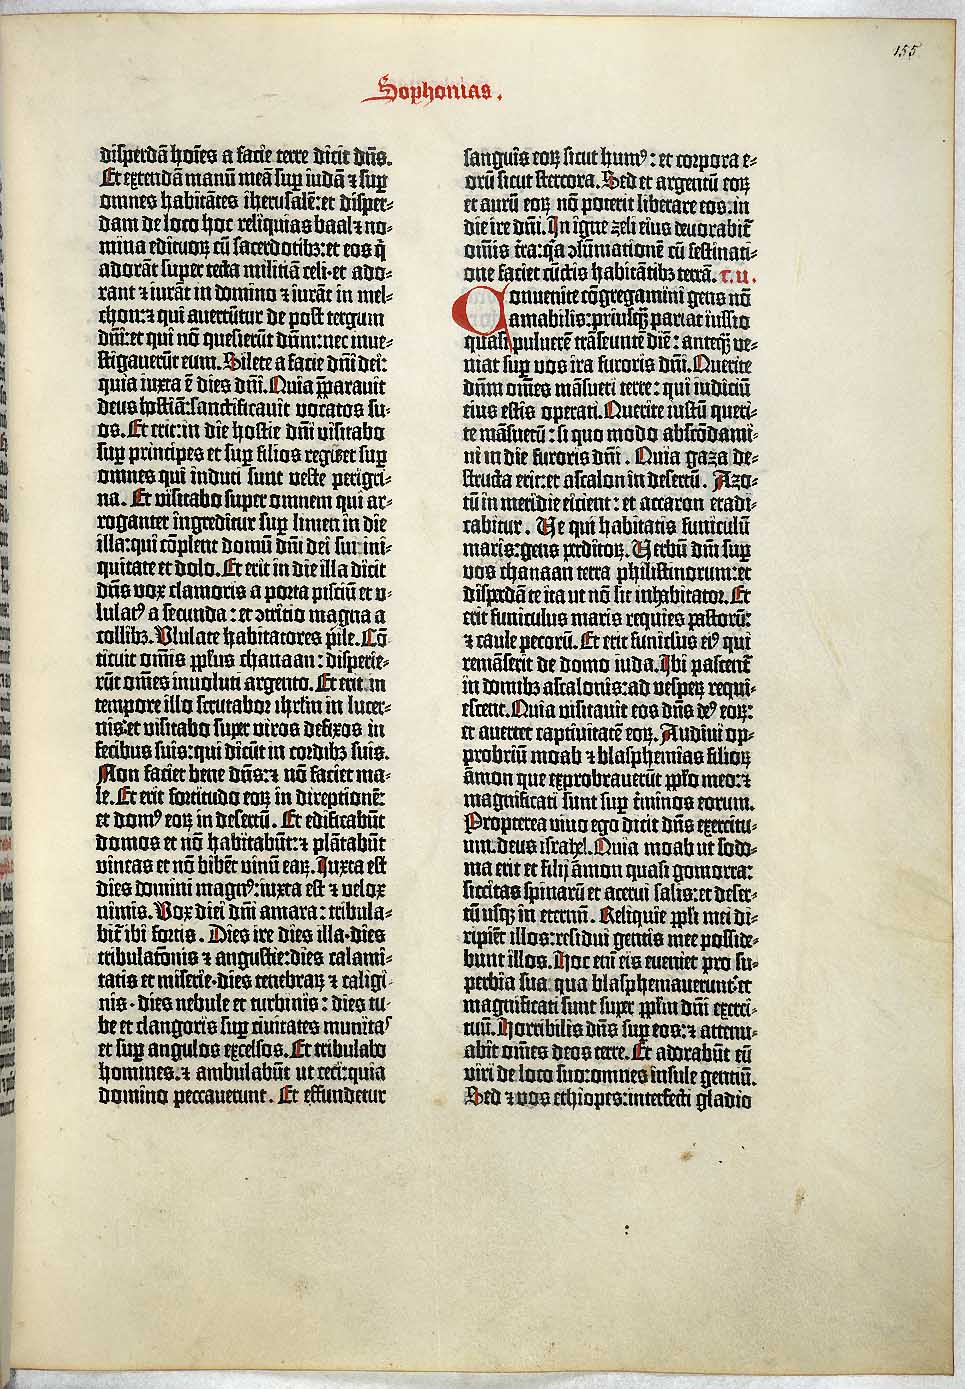 155
Sophonias.
disperdā hoīes a facie terre dicit dn̄s.
Et extendā manū meā sup iudā ⁊ sup
omnes habitātes iherusalē: et disper-
dam de loco hoc reliquias baal ⁊ no-
mina edituoꝝ cū sacerdotibꝫ: et eos q̄
adorāt super tecta militiā celi· et ado-
rant ⁊ iurāt in domino ⁊ iurāt in mel-
chon: ⁊ qui auertūtur de post tergum
dn̄i: et qui nō quesierūt dn̄m: nec inue-
stigauerūt eum. Silete a facie dn̄i dei:
quia iuxta ē dies dn̄i. Quia p̄parauit
deus hostiā: sanctificauit vocatos su-
os. Et erit: in die hostie dn̄i visitabo
sup principes et sup filios regis: et sup
omnes qui induti sunt veste peregri-
na. Et visitabo super omnem qui ar-
roganter ingreditur sup limen in die
illa: qui cōplent domū dn̄i dei sui ini-
quitate et dolo. Et erit in die illa dicit
dn̄s vox clamoris a porta pisciū et v-
lulatꝰ a secunda: et ɔtritio magna a
collibꝫ. Ululate habitatores pile. Cō-
ticuit om̄is pp̄lus chanaan: disperie-
rūt om̄es inuoluti argento. Et erit in
tempore illo scrutabor ihrl̄m in lucer-
nis: et visitabo super viros defixos in
fecibus suis: qui dicūt in cordibꝫ suis.
Non faciet bene dn̄s: ⁊ nō faciet ma-
le. Et erit fortitudo eoꝝ in direptionē:
et domꝰ eoꝝ in desertū. Et edificabūt
domos et nō habitabūt: ⁊ plātabūt
vineas et nō bibēt vinū eaꝝ. Iuxta est
dies domini magnꝰ: iuxta est ⁊ velox
nimis. Vox diei dn̄i amara: tribula-
bit̄ ibi fortis. Dies ire dies illa· dies
tribulatōnis ⁊ angustie: dies calami-
tatis et miserie· dies tenebraꝝ ⁊ caligi-
nis· dies nebule et turbinis: dies tu-
be et clangoris sup ciuitates munitas
et sup angulos excelsos. Et tribulabo
homines. ⁊ ambulabūt ut ceci: quia
domino peccauerunt. Et effundetur
sanguis eoꝝ sicut humꝰ: et corpora e-
orū sicut stercora. Sed et argentū eoꝝ
et aurū eoꝝ nō poterit liberare eos. in
die ire dn̄i. In igne zeli eius deuorabit̄
om̄is t̄ra: q̄a ɔsūmationē cū festinati-
one faciet cūctis habitātibꝫ terrā. c.ii.
Conuenite cōgregamini gens nō
amabilis: priusqꝫ pariat iussio
quasi puluerē trāseuntē diē: anteqꝫ ve-
niat sup vos ira furoris dn̄i. Querite
dn̄m om̄es māsueti terre: qui iudiciū
eius estis operati. Querite iustū queri-
te māsuetū: si quo modo abscōdami-
ni in die furoris dn̄i. Quia gaza de-
structa erit: et ascalon in desertū. Azo-
tū in meridie eicient: et accaron eradi-
cabitur. Ve qui habitatis funiculū
maris: gens pditoꝝ. Verbū dn̄i sup
vos chanaan terra philistinorum: et
disperdā te ita ut nō sit inhabitator. Et
erit funiculus maris requies pastorū:
⁊ caule pecorū. Et erit funiclus eiꝰ qui
remāserit de domo iuda. Ibi pascent̄
in domibꝫ ascalonis: ad vesperꝫ requi-
escent. Quia visitauit eos dn̄s deꝰ eoꝝ:
et auertet captiuitatē eoꝝ. Audiui op-
probriū moab ⁊ blasphemias filioꝝ
āmon que exprobrauerūt pp̄lo meo: ⁊
magnificati sunt sup t̄minos eorum.
Propterea viuo ego dicit dn̄s exercitu-
um. deus israhel. Quia moab ut sodo-
ma erit et filij āmon quasi gomorra:
siccitas spinarū et acerui salis: et deser-
tū usqꝫ in eternū. Reliquie pp̄li mei di-
ripiēt illos: residui gentis mee posside-
bunt illos. Hoc etiā eis eueniet pro su-
perbia sua: qua blasphemauerunt· et
magnificati sunt super pp̄lm dn̄i exerci-
tuū. Horribilis dn̄s sup eos: ⁊ attenu-
abit om̄es deos terre. Et adorabūt eū
viri de loco suo: omnes insule gentiū.
Sed ⁊ vos ethiopes: interfecti gladio